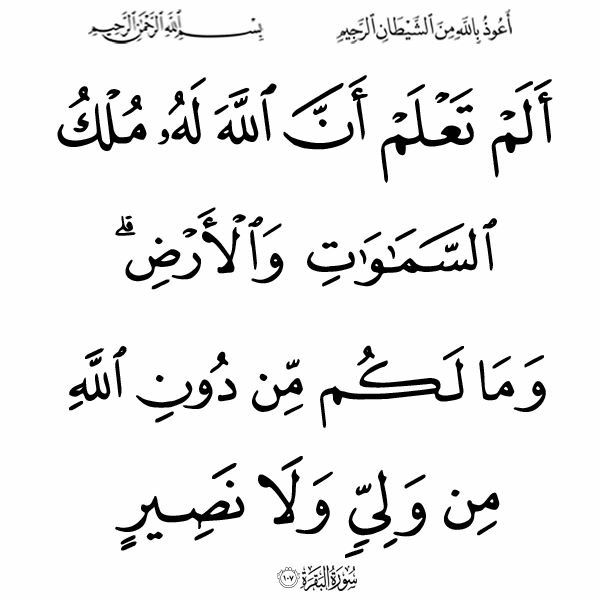 أَعُوذُ بِاللَّهِ مِنَ ٱلشَّيْطَانِ ٱلرَّجِيمِ بِسْمِ ٱللَّهِ ٱلرَّحْمَٰنِ ٱلرَّحِيمِ
أَلَمْ تَعْلَمْ أَنَّ ٱللَّهَ لَهُۥ مُلْكُ
ٱلسَّمَٰوَٰتِ وَٱلْأَرْضِ ۗ
وَمَا لَكُم مِّن دُونِ ٱللَّهِ
مِن وَلِىٍّ وَلَا نَصِيرٍ
سُورَةُ البَقَرَةِ ١٠٧